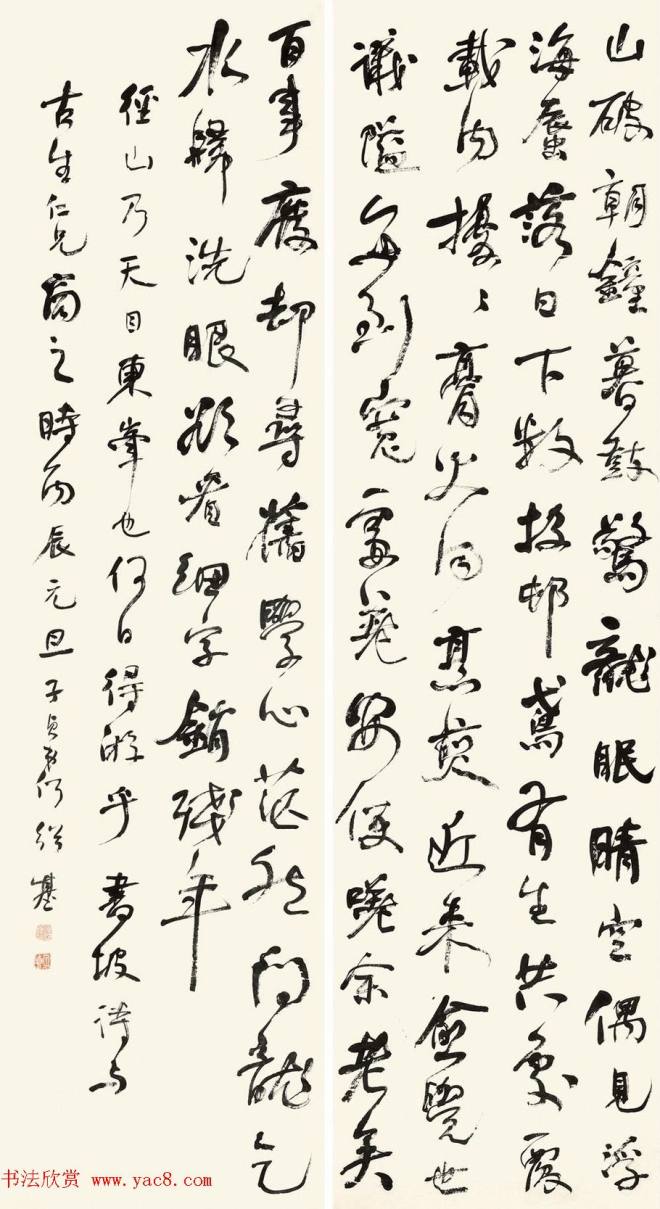 山破朝鐘暮鼓驚龍眠晴空偶見浮
海蜃落日下數投邨鳶有生共處覆
載內擾〻膏火同烹煎近來愈覺世
議隘每到寬處差安便嗟余老矣
百事廢却尋舊學心茫然問龍乞
水歸洗眼欲看細字銷殘年
徑山乃天目東峯也何日得游乎書坡詩與
古生仁兄商之時丙辰元旦子貞弟何紹基
书法欣赏 www.yac8.com